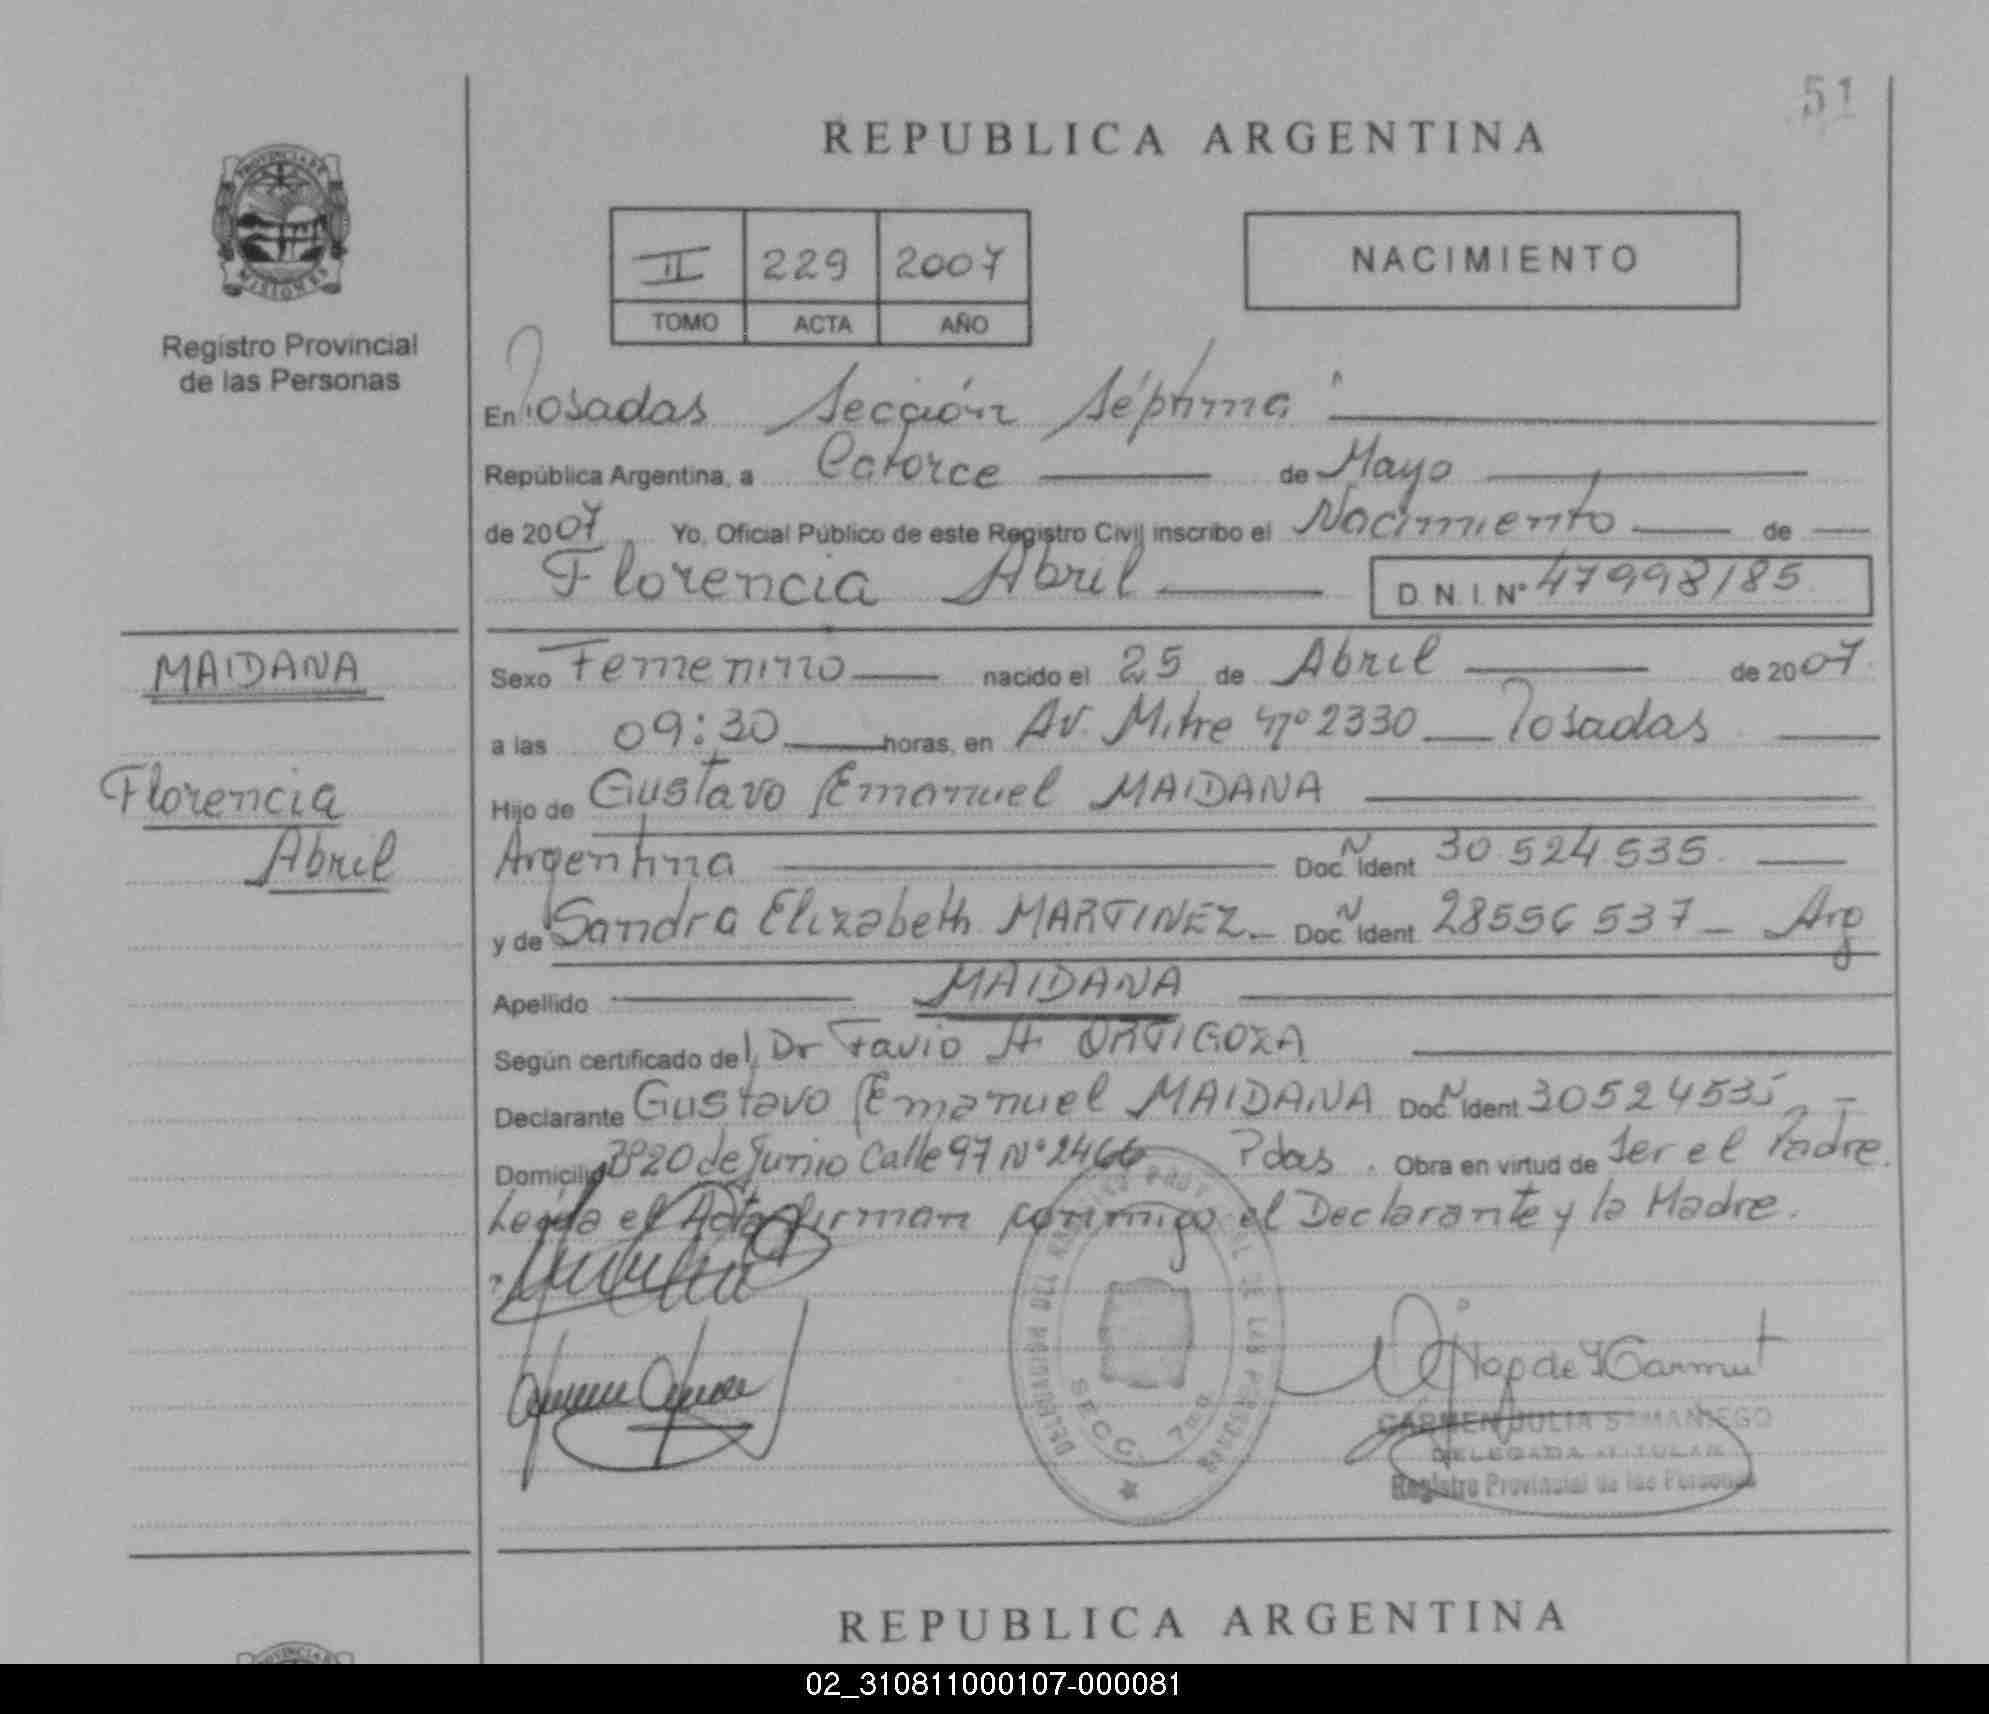 51
REPUBLICA ARGENTINA
PROVINCIA DE
MISIONES
Registro Provincial
de las Personas
II 229 2007
TOMO ACTA AÑO
NACIMIENTO
En Posadas Sección Séptima
República Argentina, a Catorce de Mayo
de 2007 Yo, Oficial Público de este Registro Civil inscribo el Nacimiento de
Florencia Abril D.N.I. Nº 47998185
MAIDANA
Florencia
Abril
Sexo Femenino nacido el 25 de Abril de 2007
a las 09:30 horas, en Av. Mitre nº 2330 Posadas
Hijo de Gustavo Emanuel MAIDANA
Argentina Doc. Ident 30.524.535.
y de Sandra Elizabeth MARTINEZ Doc. Ident. 28556537 Arg
Apellido MAIDANA
Según certificado del Dr Favio A ORTIGOZA
Declarante Gustavo Emanuel MAIDANA Doc. Ident 30524535
Domicilio Bº 20 de Junio Calle 97 Nº 2466 Pdas. Obra en virtud de Ser el Padre.
Leída el Acta firman conmigo el Declarante y la Madre.
DELEGACION REGISTRO PROVINCIAL DE LAS PERSONAS
SECC. 7ma
CARMEN JULIA SAMANIEGO
DELEGADA TITULAR
Registro Provincial de las Personas
REPUBLICA ARGENTINA
02_310811000107-000081